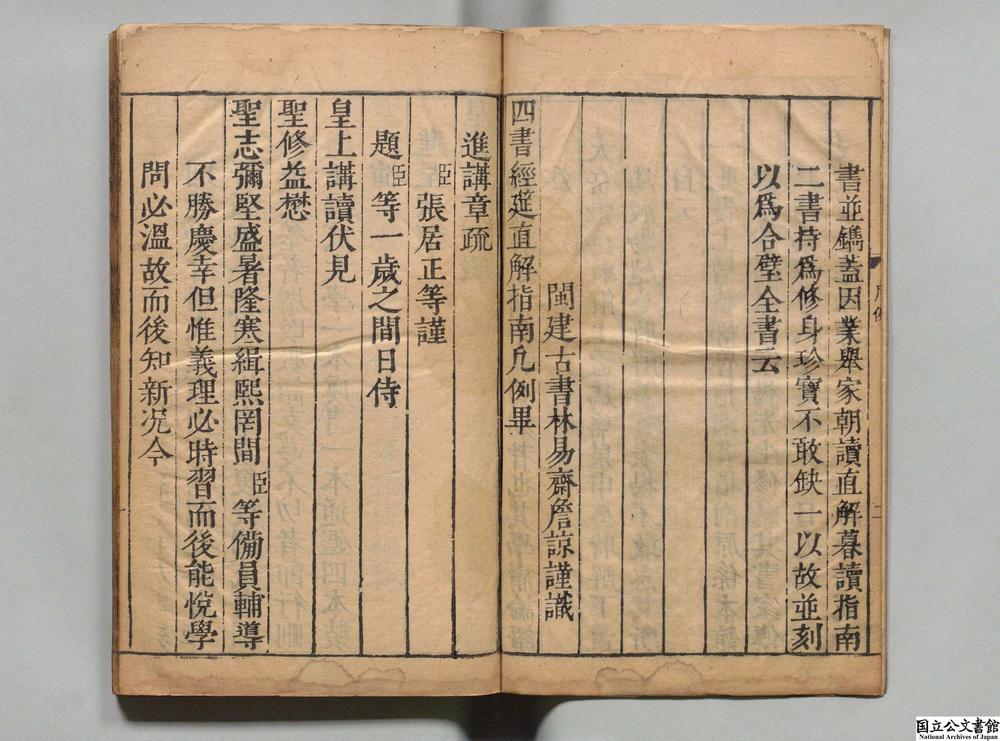 書並鐫蓋因業舉家朝讀直解暮讀指南
二書持爲修身珍寶不敢缺一以故並刻
以爲合璧全書云
閩建古書林易齋詹諒謹識
四書經筵直解指南凡例畢
進講章疏
臣張居正等謹
題臣等一歲之間日侍
皇上講讀伏見
聖修益懋
聖志彌堅盛暑隆寒緝熙罔間臣等備員輔導
不勝慶幸但惟義理必時習而後能悅學
問必溫故而後知新况今
国立公文書館
National Archives of Japan